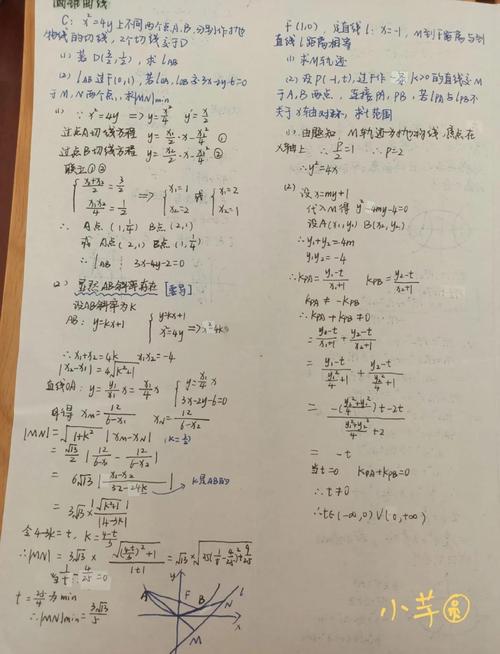 圆锥曲线
C: x²=4y上不同两个点A.B.分别作抛物线的切线,2个切线交于D
(1) 若D(3/2, 1/2), 求lAB
(2) lAB过F(0,1), 若lOA, lOB交3x-2y-6=0于M,N两个点,求|MN|min
(1) ∵ x²=4y => y=x²/4 y'=x/2
过点A切线方程 y=x₁/2·x-x₁²/4 ①
过点B切线方程 y=x₂/2·x-x₂²/4 ②
联立①②
{(x₁+x₂)/2=3/2 x₁x₂/4=1/2 => {x₁=1 x₂=2 或 {x₁=2 x₂=1
∴ A点(1,1/4) B点(2,1)
或 A点(2,1) B点(1,1/4)
∴ lAB: 3x-4y-2=0
(2) 显然AB斜率存在
设AB斜率为K
AB: y=kx+1 {y=kx+1 x²=4y
∴x₁+x₂=4k x₁x₂=-4
|x₂-x₁|=4√(k²+1)
直线OA: y=y₁/x₁ x=x₁/4 x {y=x₁/4 x 3x-2y-6=0
解得 xM=12/(6-x₁) xN=12/(6-x₂)
|MN|=√(1+k²)|xM-xN| (k=3/2)
=√13/2|12/(6-x₁)-12/(6-x₂)|
=6√13|(x₁-x₂)/(32-24k)| K是AB的
=3√13×|√(k²+1)|/|4-3k|
令4-3k=t, k=(4-t)/3
∴|MN|=3√13×√(((4-t)/3)²+1)/|t|
t=25/4为min
∴|MN|min=3√13/5
y
A
F
B
N
x
M
F(1,0), 定直线l: x=-1, M到F距离与到直线l距离相等
(1) 求M轨迹
(2) 设P(-1,t),过F作k>0的直线交M于A,B两点,连接PA,PB,若lPA与lPB不关于x轴对称,求t范围
(1) 由题知,M轨迹为抛物线,焦点在x轴上 ∴p/2=1 ∴p=2
∴y²=4x
(2) 设x=my+1
代入M得 y²-4my-4=0
设A(x₁,y₁) B(x₂,y₂)
∴y₁+y₂=4m
y₁y₂=-4
∴kPA=(y₁-t)/(x₁+1) kPB=(y₂-t)/(x₂+1)
kPA≠-kPB
∴kPA+kPB≠0
=(y₁-t)/(x₁+1)+(y₂-t)/(x₂+1)
=(y₁-t)/(y₁²/4+1)+(y₂-t)/(y₂²/4+1)
=-t
当t=0 kPA+kPB=0
∴t≠0
∴t∈(-∞,0)∪(0,+∞)
小芋圆